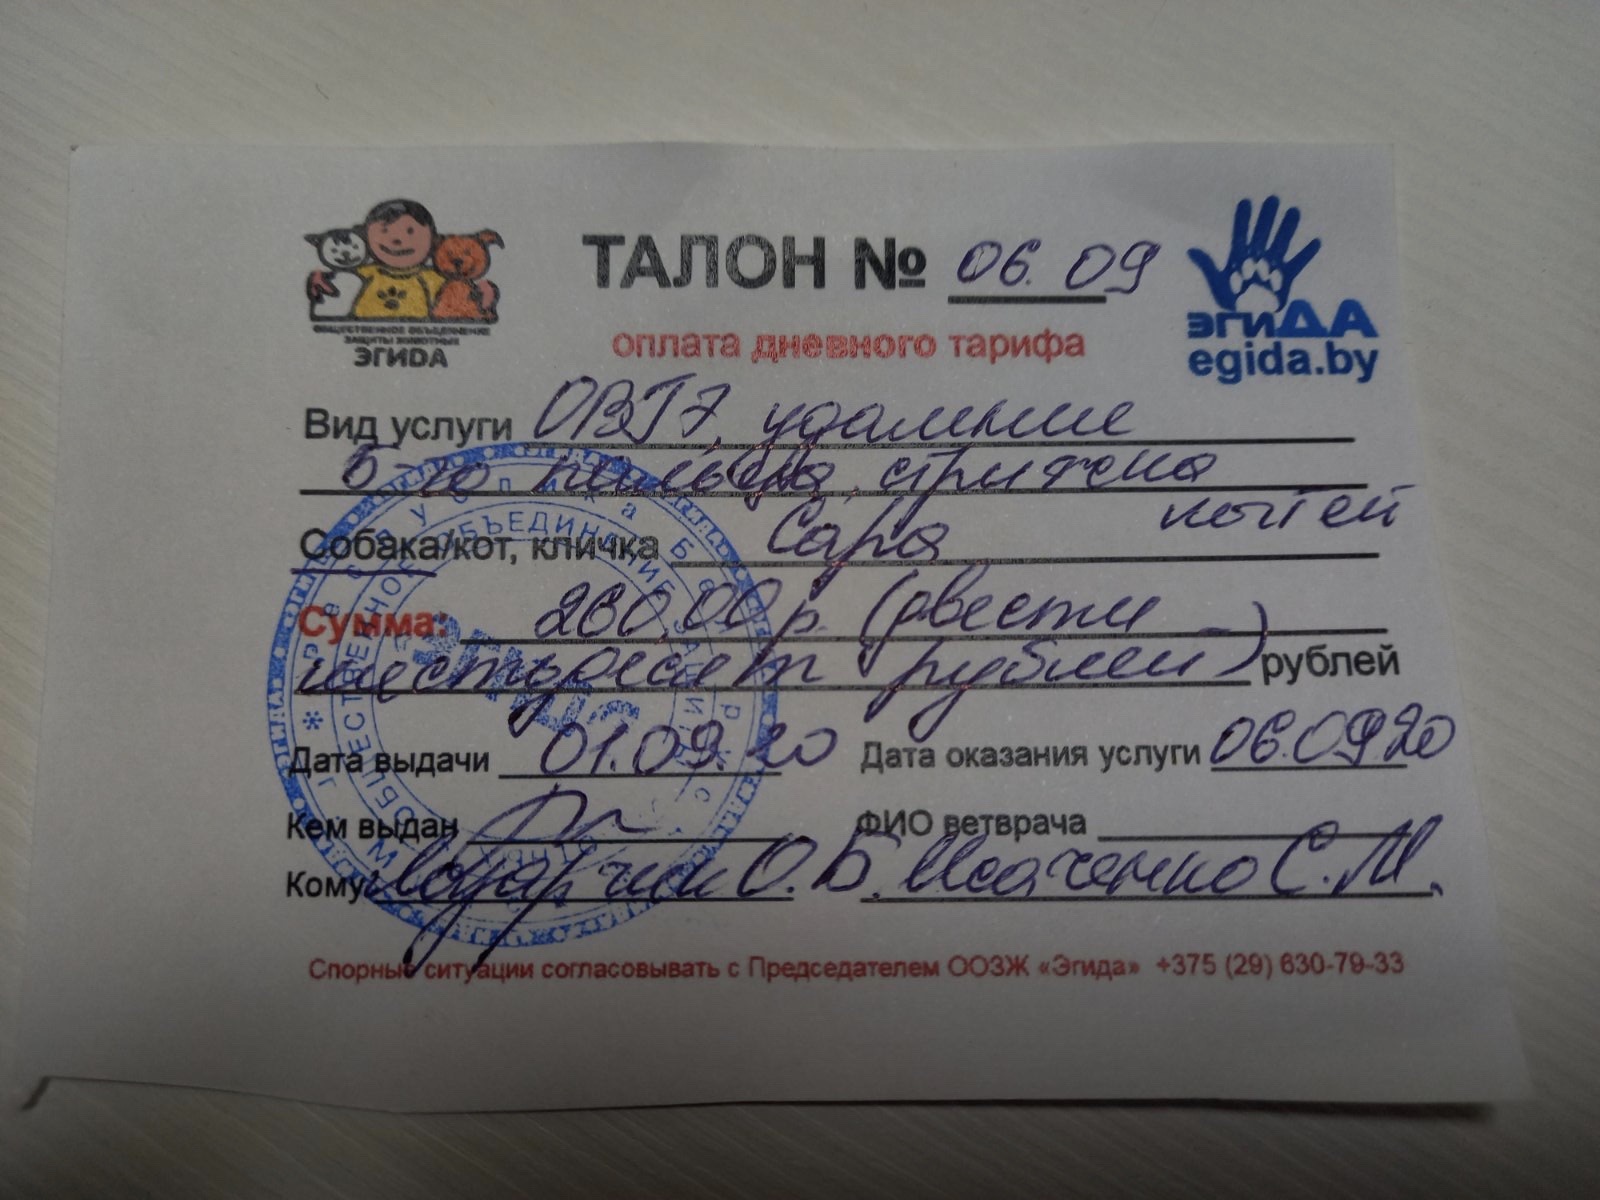 ОБЩЕСТВЕННОЕ ОБЪЕДИНЕНИЕ
ЗАЩИТЫ ЖИВОТНЫХ
ЭГИДА
ТАЛОН № 06.09
оплата дневного тарифа
эгиДА
egida.by
Вид услуги ОВГЭ, удаление
5-го пальца, стрижка
когтей
Собака/кот, кличка Сара
Сумма: 260,00 р. (двести
шестьдесят рублей) рублей
Дата выдачи 01.09.20 Дата оказания услуги 06.09.20
Кем выдан ФИО ветврача
Кому О.Б. Исаченко С.М.
Спорные ситуации согласовывать с Председателем ООЗЖ «Эгида» +375 (29) 630-79-33